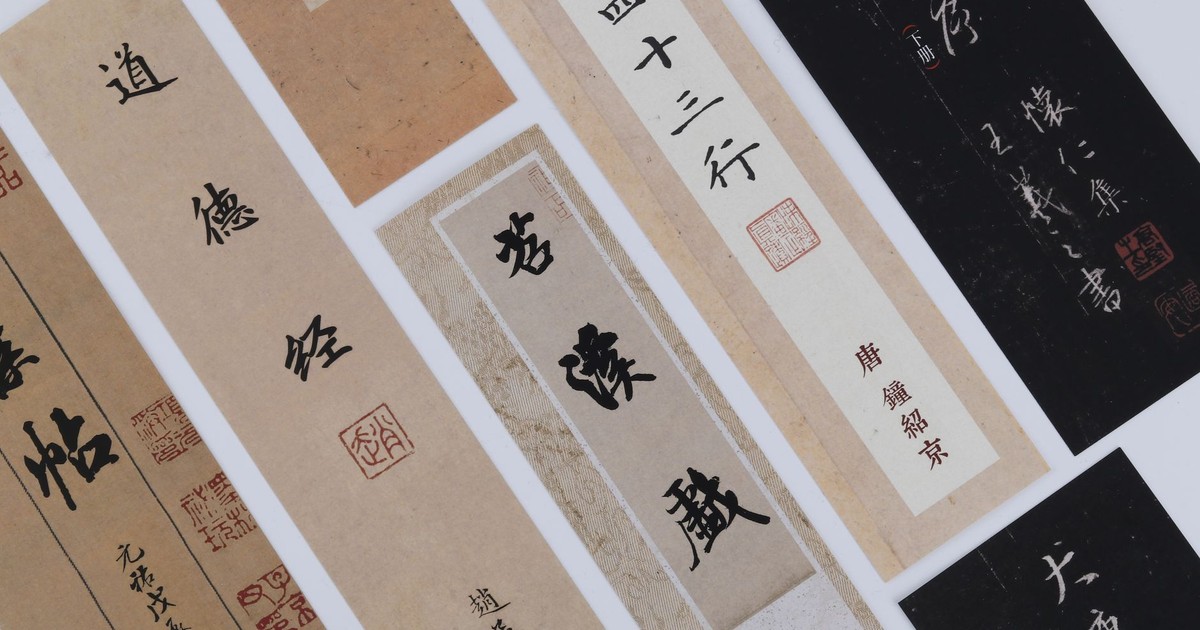 帖
元祐戊
道德经
趙
苕溪戲
四十三行
唐鐘紹京
序
下册
懷仁集
王羲之書
大唐